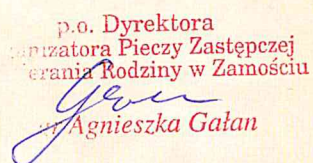 p.o. Dyrektora
Pieczy Zastępczej
Rodziny w Zamościu
Agnieszka Gałan